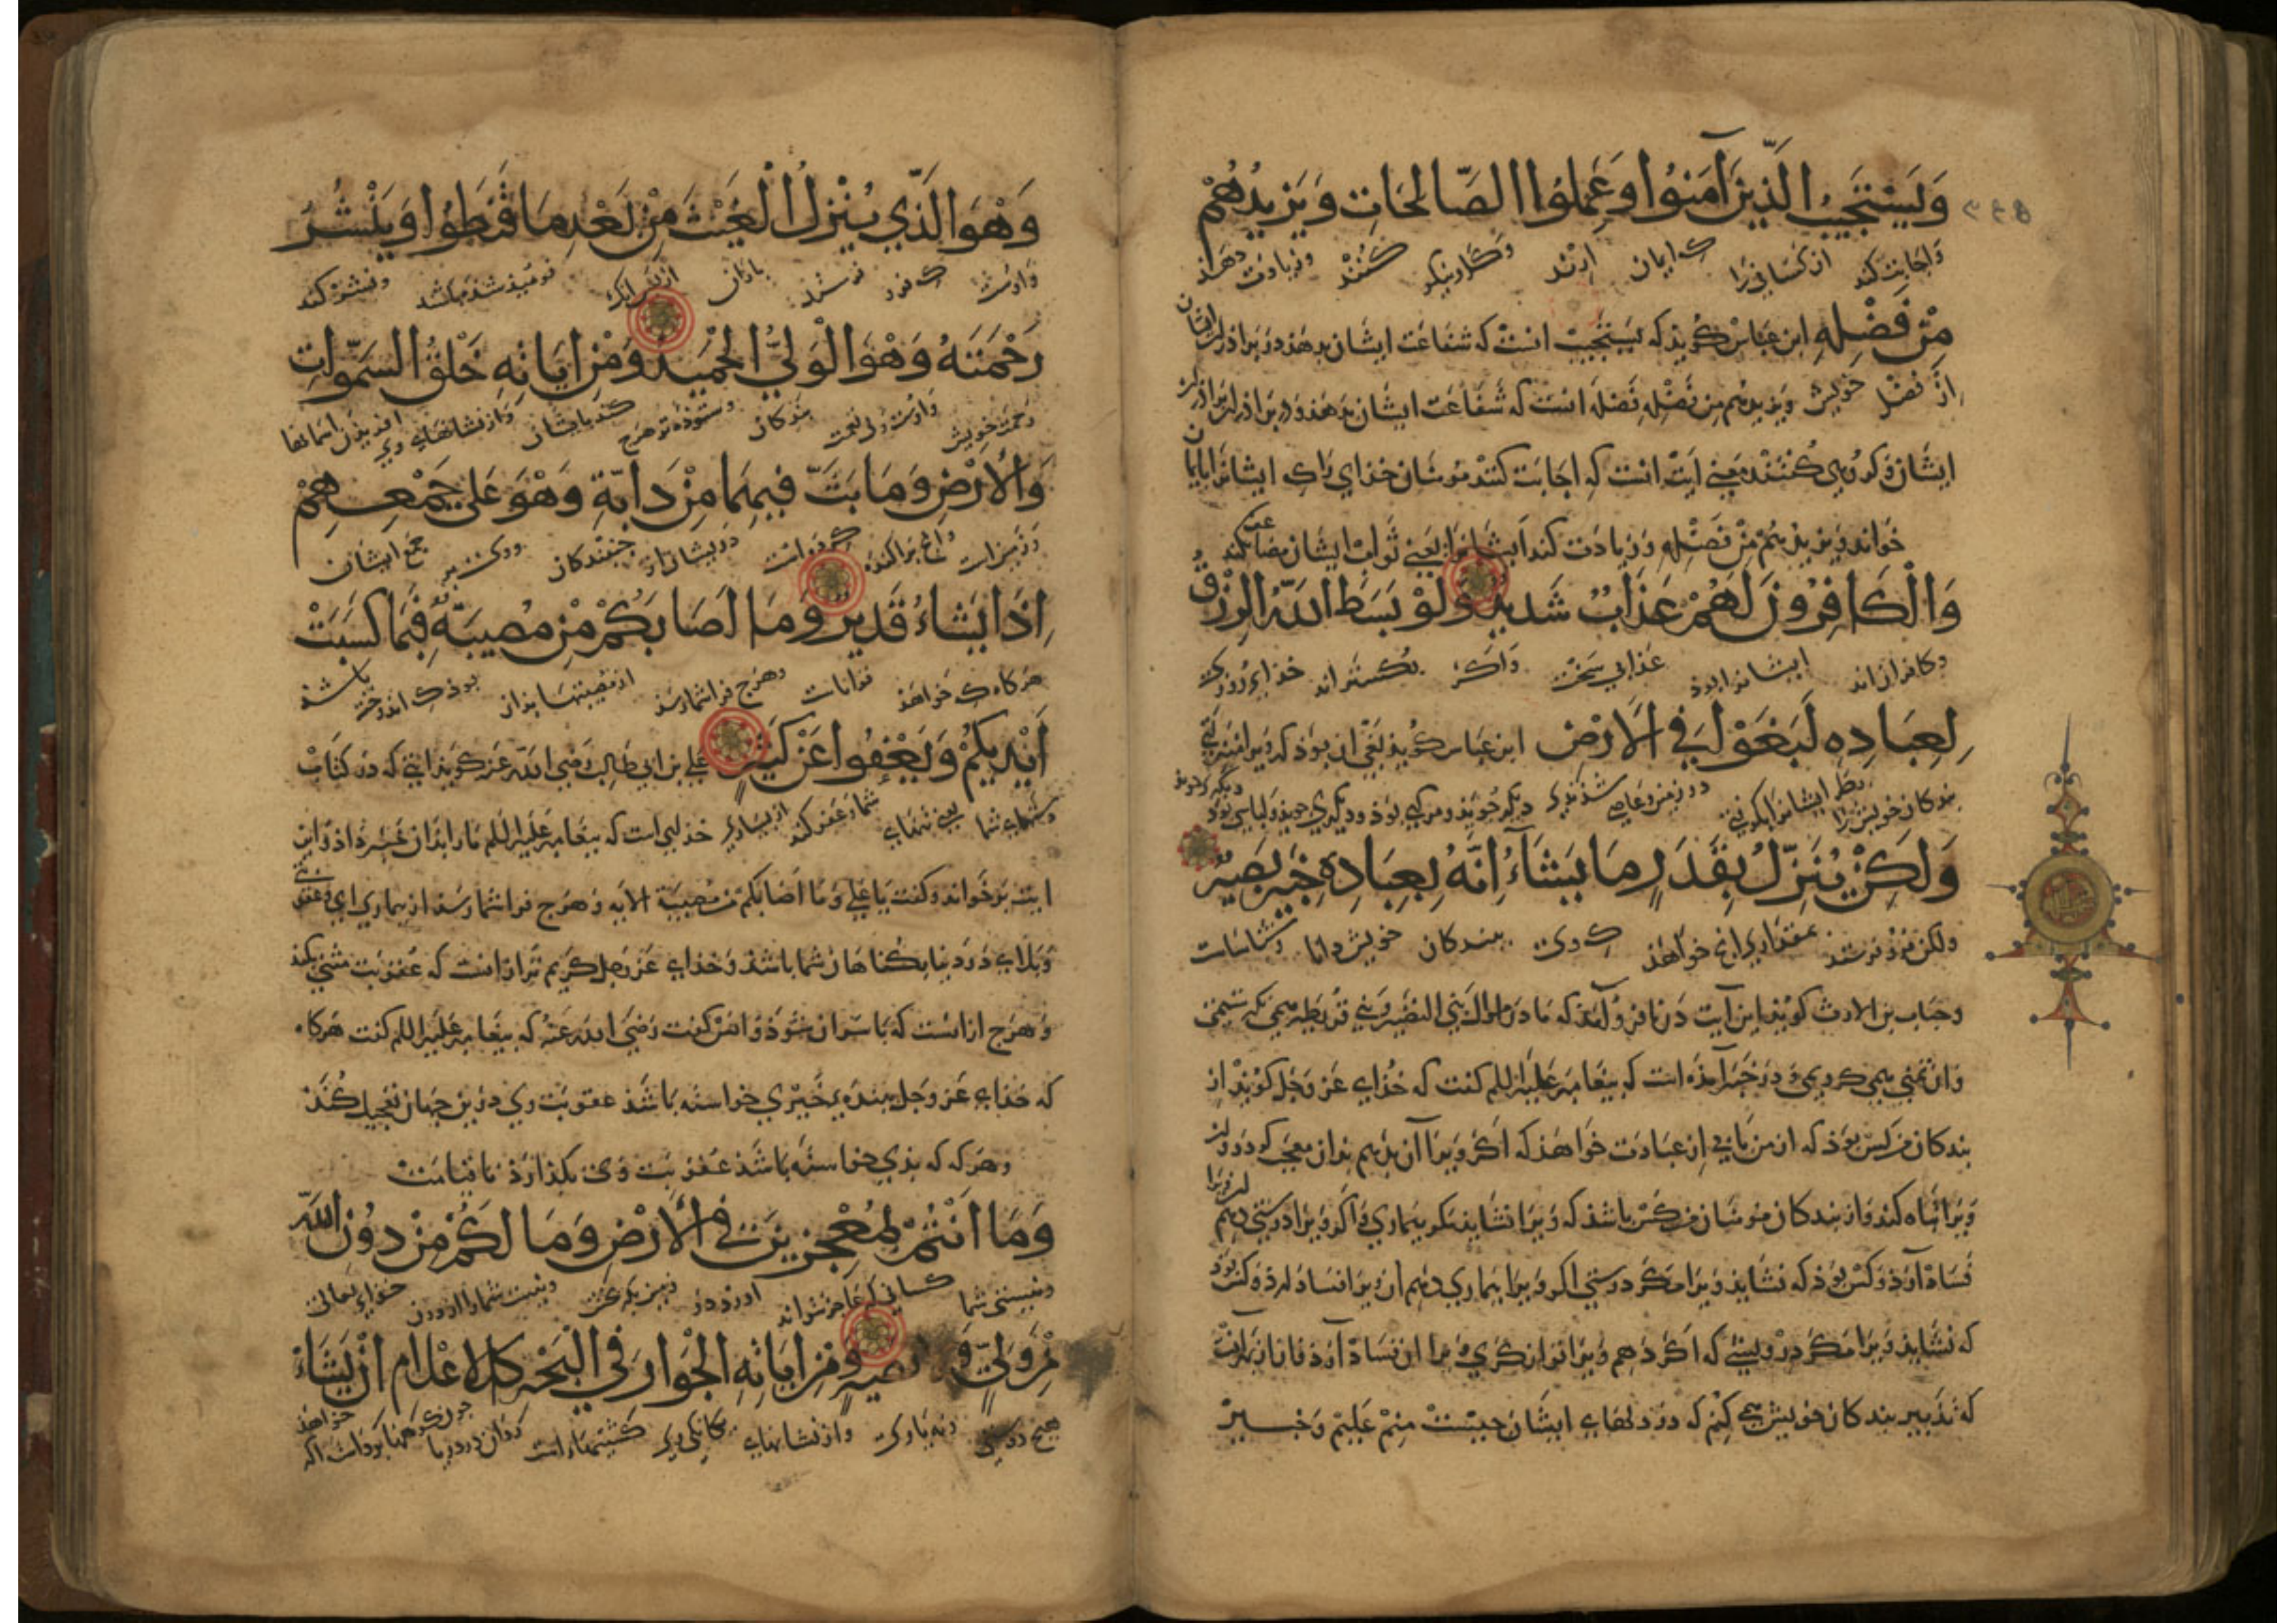 وَيَسْتَجِيبُ الَّذِينَ آمَنُوا وَعَمِلُوا الصَّالِحَاتِ وَيَزِيدُهُمْ
واجابت کند از کسانی را که ایمان ارند و کارنیکو کنند و زیادت دهد
مِنْ فَضْلِهِ ابن عباس کویذ که یستجیب انست که شفاعت ایشان بدهد در برادران ایشان
از فضل خویش ویزیدهم من فضله فضله انست که شفاعت ایشان بدهد در برادران برادران
ایشان معنی ایت انست که اجابت کنند مومنان خذای را که ایشانرا بایمان
خواند ویزیدهم من فضله و زیادت کند ایشانرا یعنی ثواب ایشان مضاعف کند
وَالْكَافِرُونَ لَهُمْ عَذَابٌ شَدِيدٌ وَلَوْ بَسَطَ اللَّهُ الرِّزْقَ
و کافران اند ایشانرا بوذ عذابی سخت و اکر بکستراند خذای روزی
لِعِبَادِهِ لَبَغَوْا فِي الْأَرْضِ ابن عباس کویذ بغی ان بوذ که
بندکان خویش را در زمین
وَلَكِنْ يُنَزِّلُ بِقَدَرٍ مَا يَشَاءُ إِنَّهُ بِعِبَادِهِ خَبِيرٌ بَصِيرٌ
ولکن فروفرستد بمقداری انچ خواهذ که وی ببندکان خویش دانا و شناسات
وخباب بن الارت کویذ این آیت در ما فرو آمذ که ما در اموال بنی النضیر و بنی قریظه می نکرستیمی
وان تمنی می کردیمی و در خبر آمذه است که پیغامبر علیه السلم کفت که خذای عز وجل کویذ از
بندکان من کس بوذ که از من بابی از عبادت خواهذ که اکر ویرا آن بدهم بدان معجب کردد
ویرا تباه کند و از بندکان مومنان من کس باشذ که ویرا نشایذ مکر بیماری و اکر ویرا درستی دهم
فساد آرد و کس بوذ که نشایذ ویرا مکر درستی اکر ویرا بیماری دهم ان ویرا فساد
که نشایذ ویرا مکر درویشی که اکر دهم ویرا توانکری ویرا ان فساد آرد
که تدبیر بندکان خویش می کنم که در دلهای ایشان چیست منم علیم و خبیر
وَهُوَ الَّذِي يُنَزِّلُ الْغَيْثَ مِنْ بَعْدِ مَا قَنَطُوا وَيَنْشُرُ
و اوست که فرو فرستد باران از پس انک نومیذ شذه باشند و نشر کند
رَحْمَتَهُ وَهُوَ الْوَلِيُّ الْحَمِيدُ وَمِنْ آيَاتِهِ خَلْقُ السَّمَوَاتِ
رحمت خویش و اوست ولی نعمت بندکان و ستوذه و از نشانهای وی افریدن اسمانها
وَالْأَرْضِ وَمَا بَثَّ فِيهِمَا مِنْ دَابَّةٍ وَهُوَ عَلَى جَمْعِهِمْ
و زمین است و انچ پراکنده در ایشان از جنبندکان و وی بر جمع ایشان
إِذَا يَشَاءُ قَدِيرٌ وَمَا أَصَابَكُمْ مِنْ مُصِيبَةٍ فَبِمَا كَسَبَتْ
هرکاه که خواهذ توانات و هرچ فرا شما رسذ از مصیبتها بذان بوذ که اندوخته باشذ
أَيْدِيكُمْ وَيَعْفُوا عَنْ كَثِيرٍ علی بن ابی طالب رضی الله عنه کویذ ایتی که در کتاب
دستهای شما یعنی تنهای شما و عفو کند از بسیاری خذایست که پیغامبر علیه السلم مارا بذان خبر داد و این
ایت بر خواند و کفت یا علی وما اصابکم من مصیبة الایه و هرچ فرا شما رسذ از بیماری ای و عقوبتی
و بلای در دنیا بکناهان شما باشذ و خذای عز وجل کریم تر ازانست که عقوبت مثنی بکند
و هرچ ازانست که باسر ان شوذ و انس کفت رضی الله عنه که پیغامبر علیه السلم کفت هرکاه
که خذای عز وجل ببنده خیری خواسته باشذ عقوبت وی درین جهان تعجیل کند
و هرکه که بذی خواسته باشذ عقوبت وی بکذارذ تا قیامت
وَمَا أَنْتُمْ بِمُعْجِزِينَ فِي الْأَرْضِ وَمَا لَكُمْ مِنْ دُونِ اللَّهِ
و نیستی شما کسانی که عاجز توانند آورد در زمین و نیست شمارا از دون خذای تعالی
مِنْ وَلِيٍّ وَلَا نَصِيرٍ وَمِنْ آيَاتِهِ الْجَوَارِ فِي الْبَحْرِ كَالْأَعْلَامِ إِنْ يَشَأْ
هیچ دوستی و نه یاوری و از نشانهای کشتیهاست روان در دریا چون کوهها اکر خواهذ